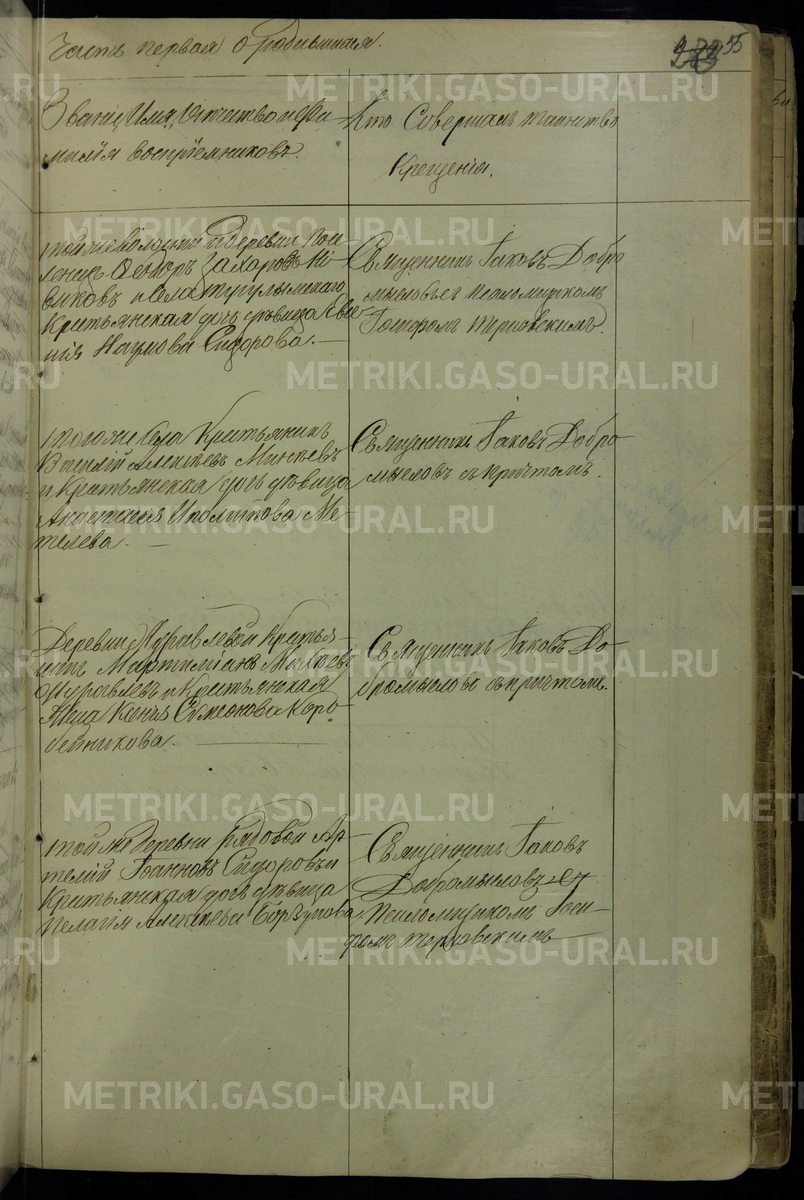 Часть первая о родившихся.
55
Званіе, Имя, Отчество и Фа-
милія воспріемниковъ.
Кто Совершалъ таинство
Крещенія.
Тойже волости и деревни
Ѳедоръ Захаровъ
и Села Тугулымскаго
Крестьянская дочь дѣвица Евге
нія Наумова Сидорова.—
Священникъ Іаковъ Добро
мысловъ съ Псаломщикомъ
Іосифомъ Терновскимъ.
Тогоже Села Крестьянинъ
Василій Алексѣевъ Минѣевъ
и Крестьянская дочь дѣвица
Анастасія Иполитова Ме-
телева. —
Священникъ Іаковъ Добро
мысловъ съ причтомъ.
Деревни Журавлевой Крестья-
нинъ Мартиміанъ
Журавлевъ и Крестьянская
Жена Ксенія Симеонова Коро-
бейникова. —
Священникъ Іаковъ До-
бромысловъ съ причтомъ.
Той же Деревни рядовой Ар-
темій Іоанновъ Сидоровъ и
Крестьянская дочь дѣвица
Пелагія Алексѣева Боргунова
Священникъ Іаковъ
Добромысловъ съ
Псаломщикомъ Іоси-
фомъ Терновскимъ
METRIKI.GASO-URAL.RU